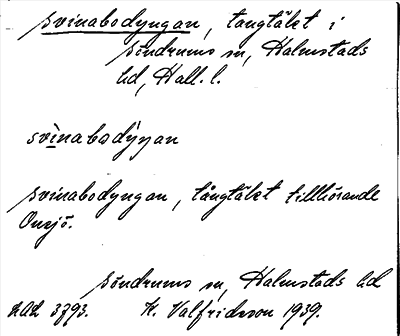 svinabodyngan, tångtäkt i
Söndrums sn, Halmstads
hd, Hall. l.
svinabodyŋan
svinabodyngan, tångtäkt tillhörande
Onsjö.
Söndrums sn, Halmstads hd
3793. K. Valfridsson 1939.